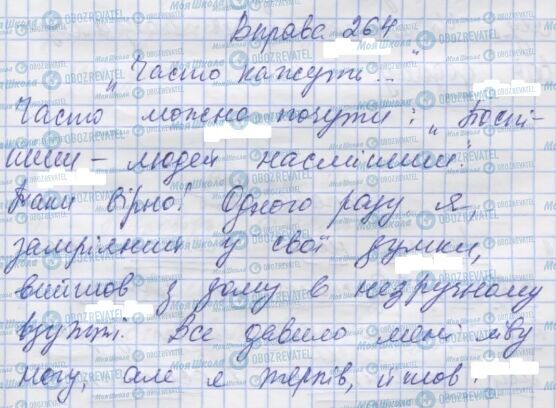 Вправа 264
„Часто кажуть..."
Часто можна почути: „Поспі-
шиш – людей насмішиш".
Таки вірно! Одного разу я,
замріяний у свої думки,
вийшов з дому в незручному
взутті. Все давило мені ліву
ногу, але я терпів, йшов.